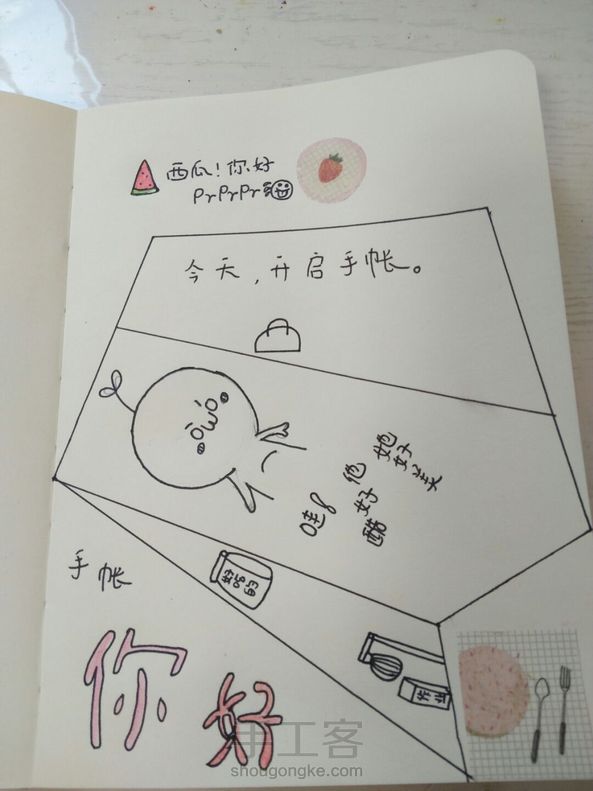 西瓜！你好
PrPrPr
今天，开启手帐。
哇！
他好酷
她好美
好吃的
手帐
作业
你好
手工客
shougongke.com